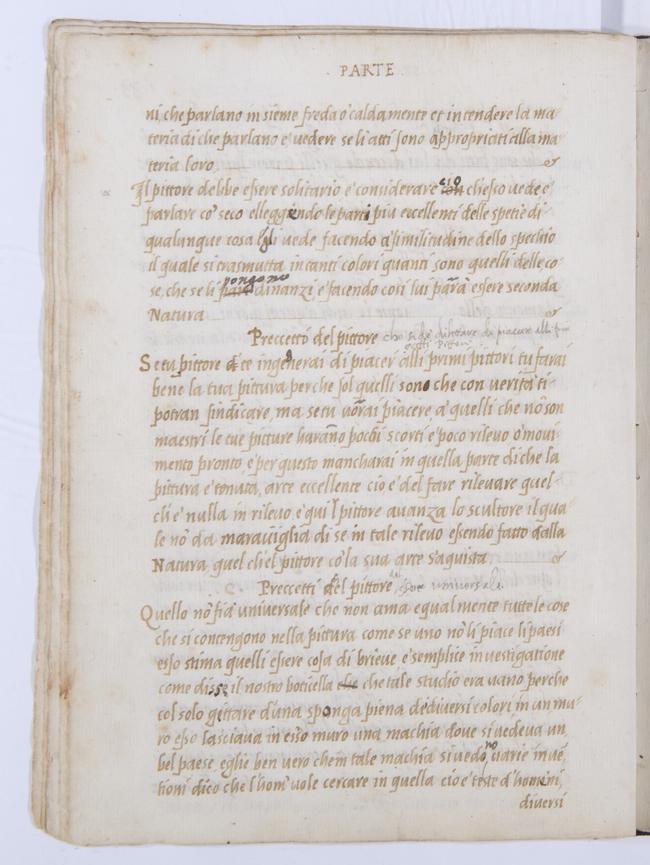 PARTE
ni che parlano insieme freda o caldamente et intendere la ma
teria di che parlano e vedere se li atti sono appropriati alla ma
teria loro
Il pittore debbe essere solitario e considerare ciò ch'esso vede e
parlare cō seco elleggiendo le parti piu eccellenti delle spetie di
qualunque cosa lui vede facendo a similitudine dello spechio
il quale si trasmutta in tanti colori quanti sono quelli delle co
se che se li pongono dinanzi, e facendo così lui parà essere seconda
Natura
Precceto del pittore che si de dilettare di piacere alli
primi pittori
Se tu pittore te ingenerai di piacer alli primi pittori tu farai
bene la tua pittura perche sol quelli sono che con verità ti
potran sindicare, ma se tu vorai piacere a quelli che nō son
maestri le tue pitture harano pochi scorti e poco rilevo o movi
mento pronto, e per questo mancharai in quella parte di che la
pittura e tenuta, arte eccellente cioe del fare rilevare quel
ch'e nulla in rilevo e qui l pittore avanza lo scultore il qua
le nō da maraviglia di se in tale rilevo essendo fatto dalla
Natura quel che'l pittore cō la sua arte s'aquista
Preccetti del pittore universale
Quello nō fia universale che non ama egualmente tutte le cose
che si contengono nella pittura come se uno nō li piace li paesi
esso stima quelli essere cosa di brieve e semplice investigatione
come disse il nostro boticella che tale studio era vano perche
col solo gittare d'una sponga piena de diversi colori in un mu
ro esso lasciava in esso muro una machia dove si vedeva un
bel paese, egli e ben vero che in tale machia si vedono varie invē
tioni di cio che l'hom vole cercare in quella cioe teste d'homini,
diversi